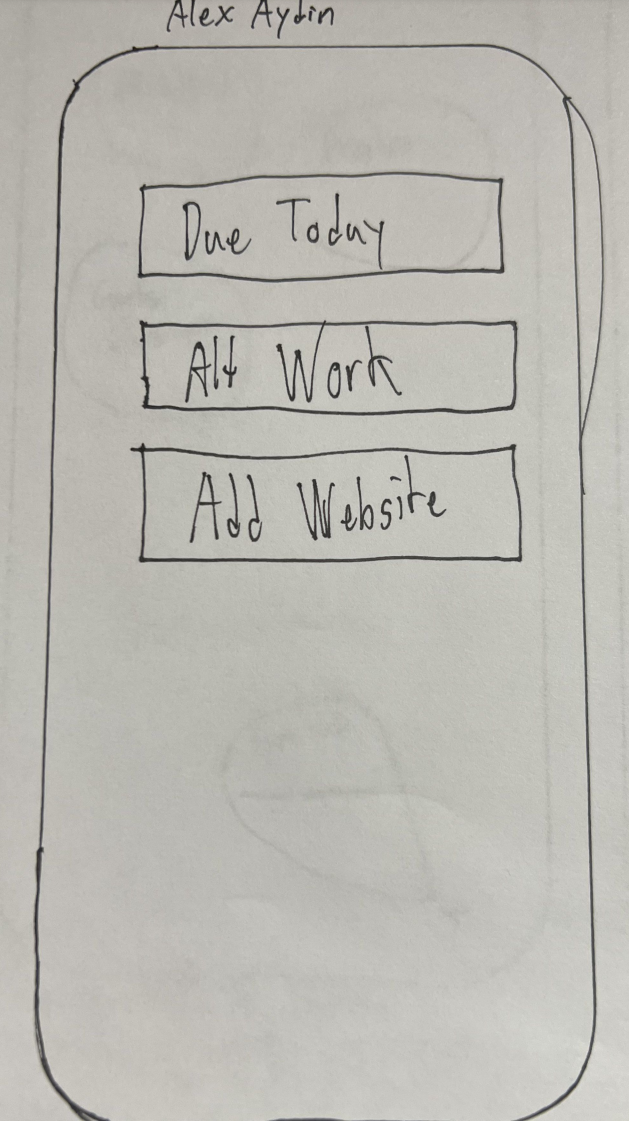 Alex Aydin
Due Today
Alt Work
Add Website